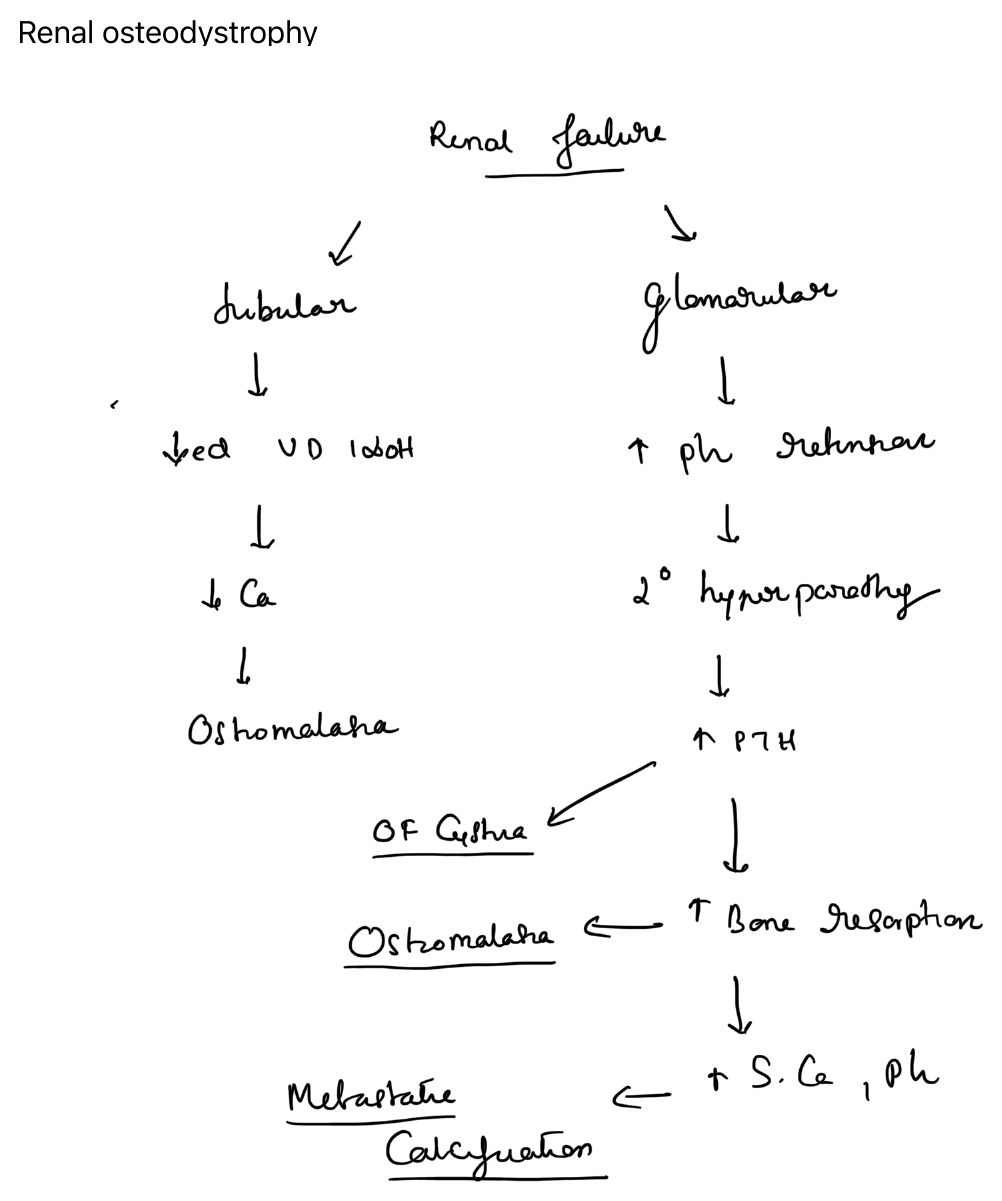 Renal osteodystrophy
Renal failure
↙ ↘
tubular glomarular
↓ ↓
↓ed VD 1αOH ↑ ph retention
↓ ↓
↓ Ca 2° hyperparathy
↓ ↓
Osteomalacia ↑ PTH
↙ ↓
OF Cystica
Osteomalacia ← ↑ Bone resorption
↓
Metastatic ← ↑ S. Ca , ph
Calcification